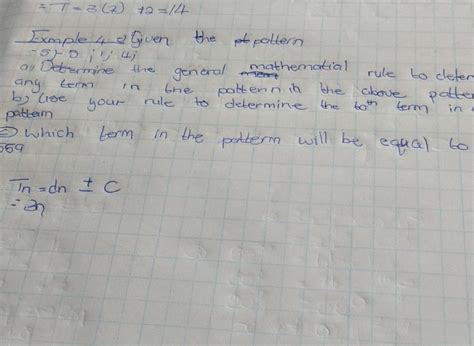 = T = 3(2) +2 = 14
Example 4 Given the pattern
-5; 1; 4;
a) Determine the general mathematial rule to deter
any term in the pattern in the above patte
b) Use your rule to determine the 10th term in
pattern
c) which term in the patterm will be equal to
559
Tn = dn ± C
= 3n